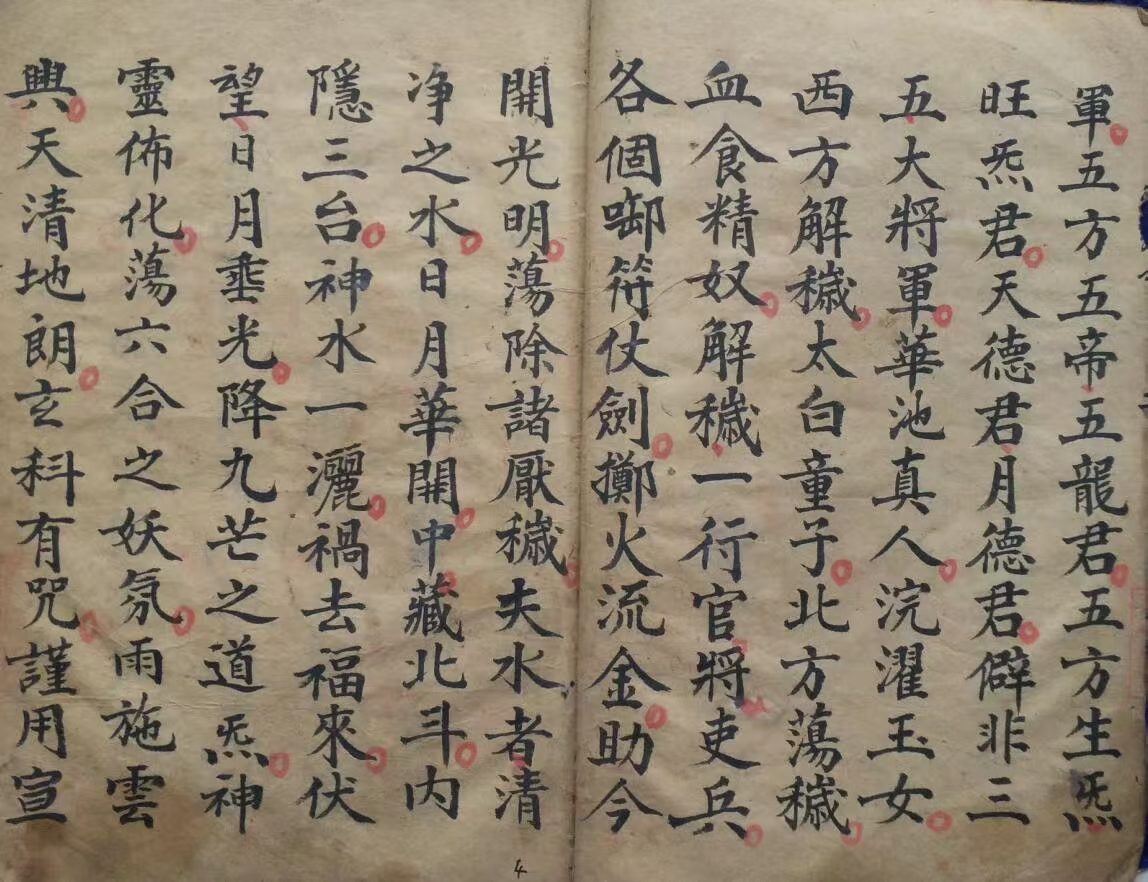 軍五方五帝五龍君五方生炁
旺炁君天德君月德君僻非三
五大將軍華池真人浣濯玉女
西方解穢太白童子北方蕩穢
血食精奴解穢一行官將吏兵
各個啣符仗劍擲火流金助今
開光明蕩除諸厭穢夫水者清
净之水日月華開中藏北斗内
隱三台神水一灑禍去福來伏
望日月垂光降九芒之道炁神
靈佈化蕩六合之妖氛雨施雲
興天清地朗玄科有咒謹用宣
4